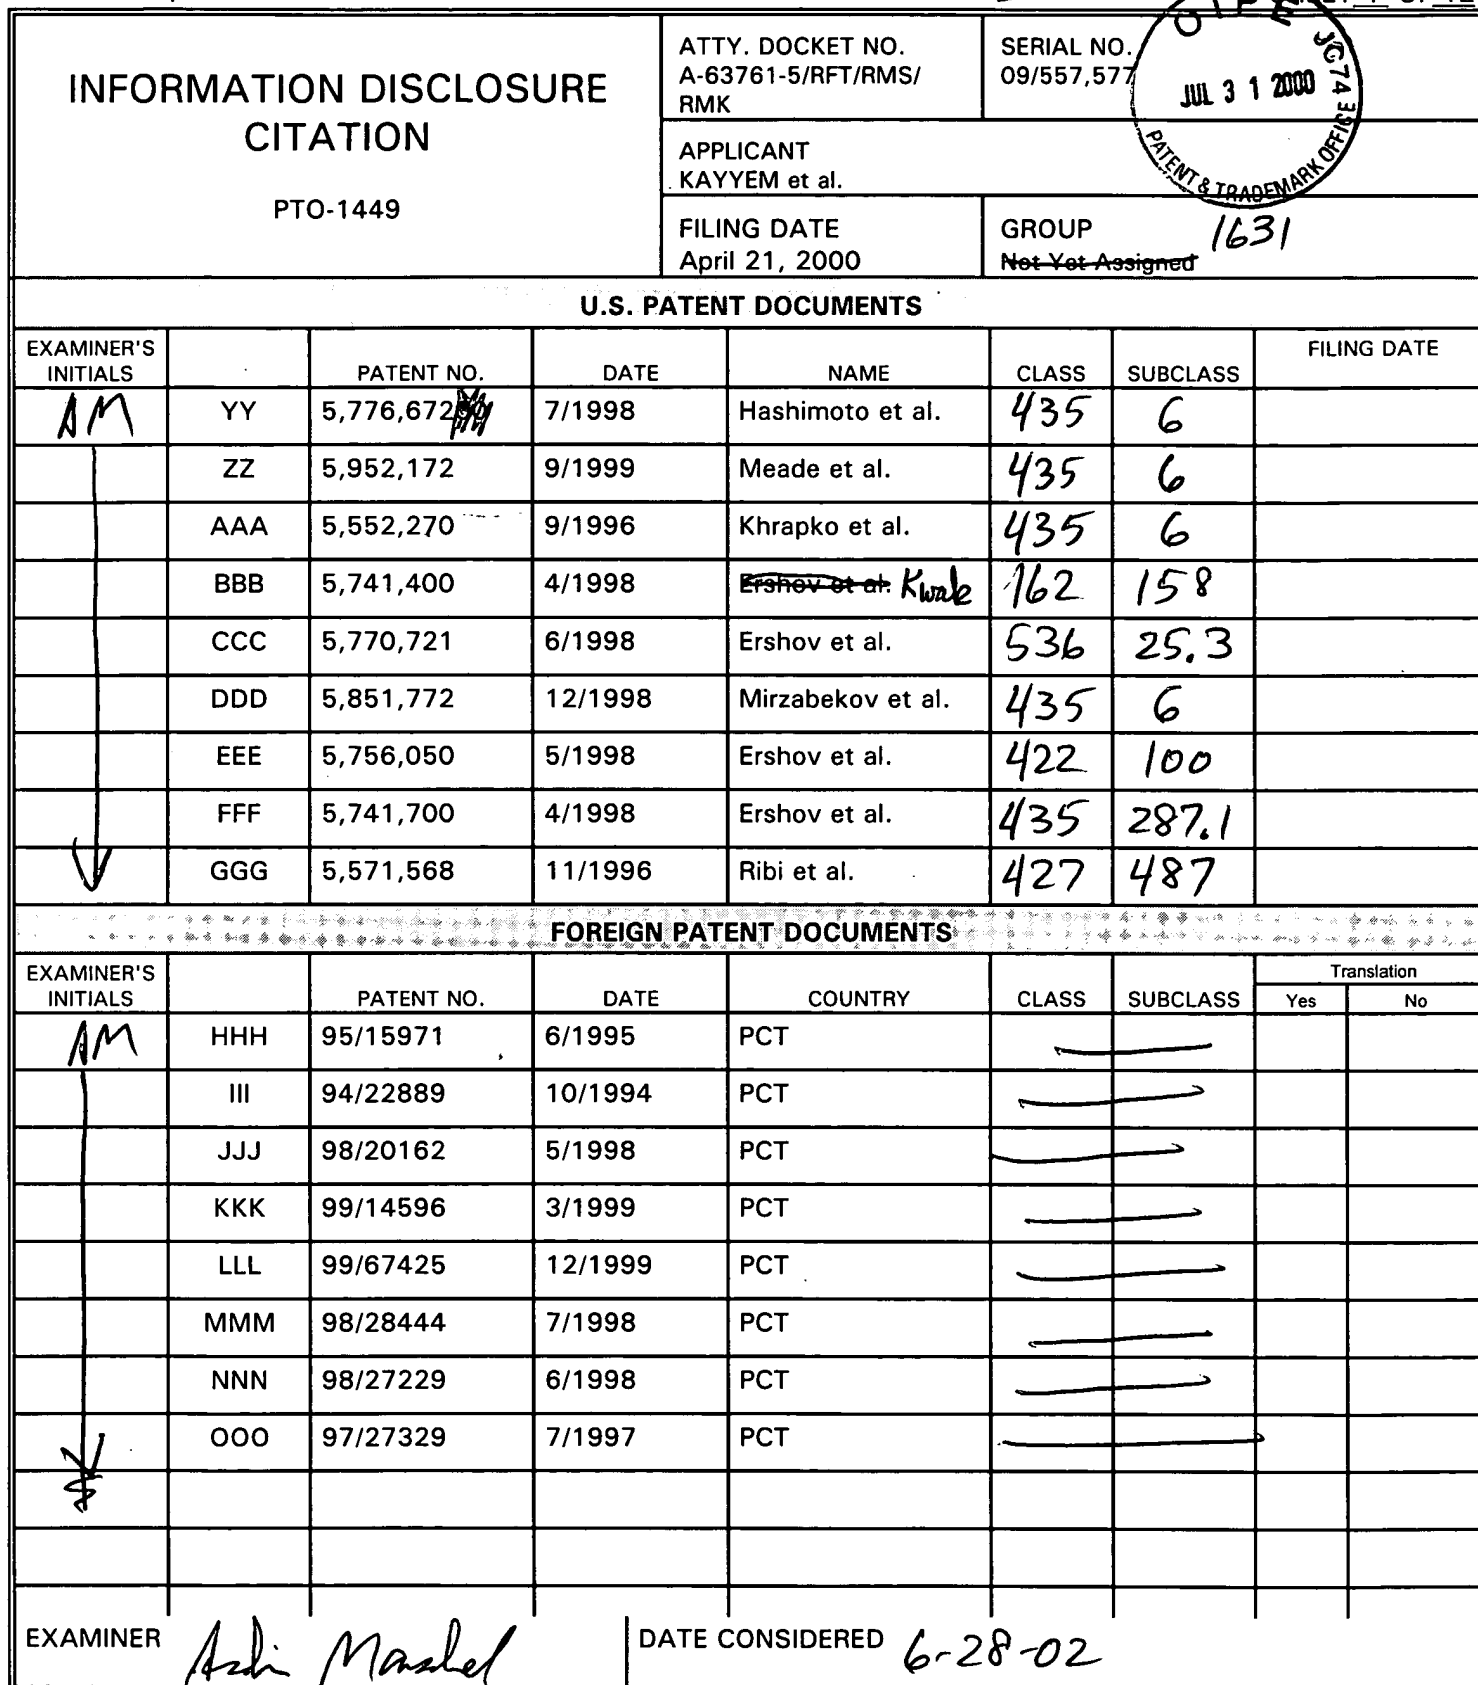 INFORMATION DISCLOSURE
CITATION
PTO-1449
ATTY. DOCKET NO.
A-63761-5/RFT/RMS/
RMK
SERIAL NO.
09/557,577
OIPE JC74
JUL 3 1 2000
PATENT & TRADEMARK OFFICE
APPLICANT
KAYYEM et al.
FILING DATE
April 21, 2000
GROUP 1631
Not Yet Assigned
U.S. PATENT DOCUMENTS
EXAMINER'S INITIALS PATENT NO. DATE NAME CLASS SUBCLASS FILING DATE
AM YY 5,776,672 7/1998 Hashimoto et al. 435 6
ZZ 5,952,172 9/1999 Meade et al. 435 6
AAA 5,552,270 9/1996 Khrapko et al. 435 6
BBB 5,741,400 4/1998 Ershov et al. Kwak 162 158
CCC 5,770,721 6/1998 Ershov et al. 536 25.3
DDD 5,851,772 12/1998 Mirzabekov et al. 435 6
EEE 5,756,050 5/1998 Ershov et al. 422 100
FFF 5,741,700 4/1998 Ershov et al. 435 287.1
GGG 5,571,568 11/1996 Ribi et al. 427 487
FOREIGN PATENT DOCUMENTS
EXAMINER'S INITIALS PATENT NO. DATE COUNTRY CLASS SUBCLASS Translation Yes No
AM HHH 95/15971 6/1995 PCT
III 94/22889 10/1994 PCT
JJJ 98/20162 5/1998 PCT
KKK 99/14596 3/1999 PCT
LLL 99/67425 12/1999 PCT
MMM 98/28444 7/1998 PCT
NNN 98/27229 6/1998 PCT
OOO 97/27329 7/1997 PCT
EXAMINER
DATE CONSIDERED 6-28-02